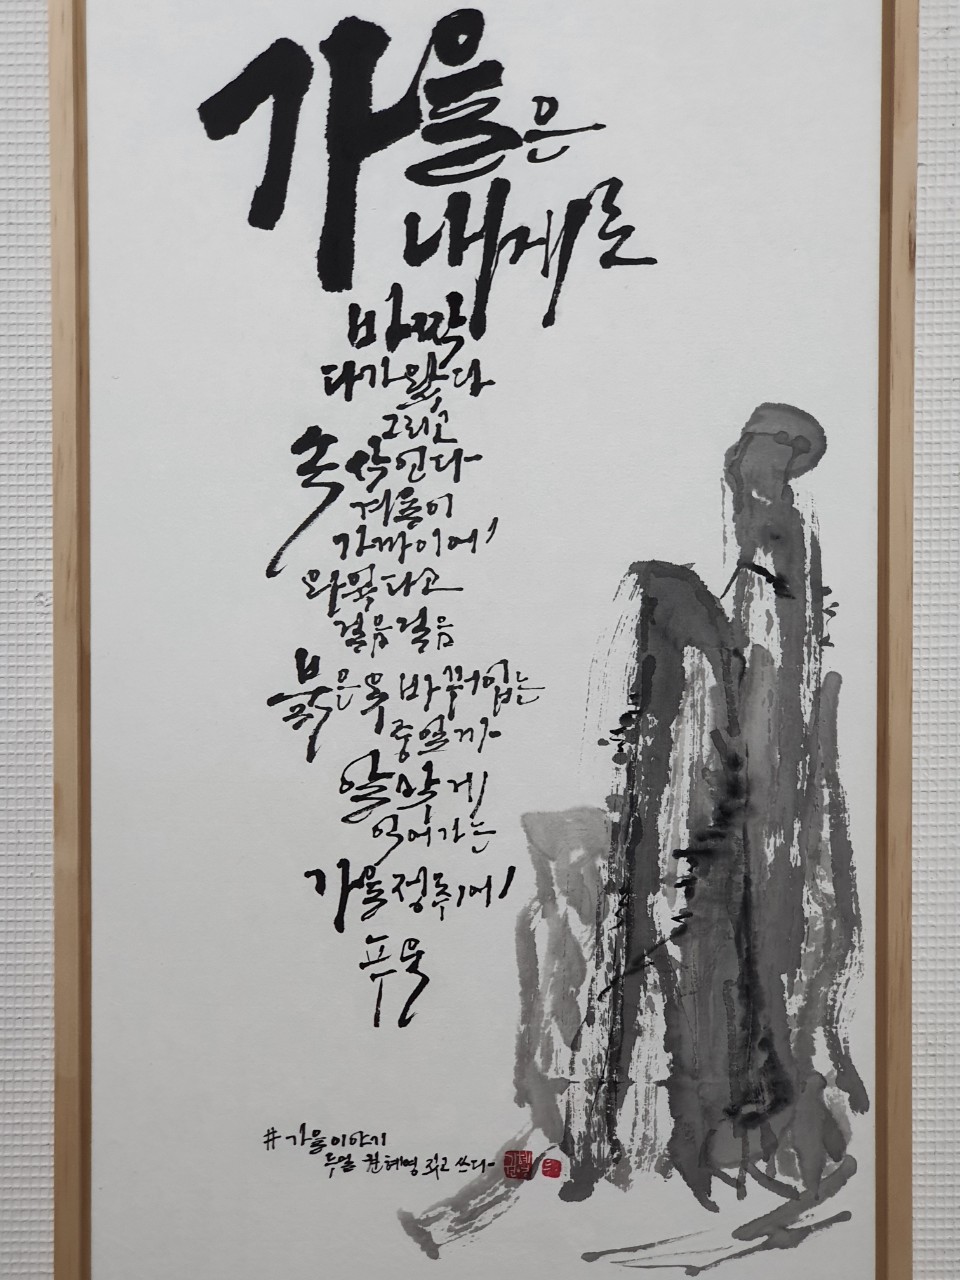 가을은
내게로
바짝
다가왔다
그리고
속삭인다
계절이
가까이에
와 있다고
걸음걸음
붉은 옷 바꿔입는
중일까
알맞게
익어가는
가을정취에
푸욱
#가을이야기
권혜영 짓고 쓰다